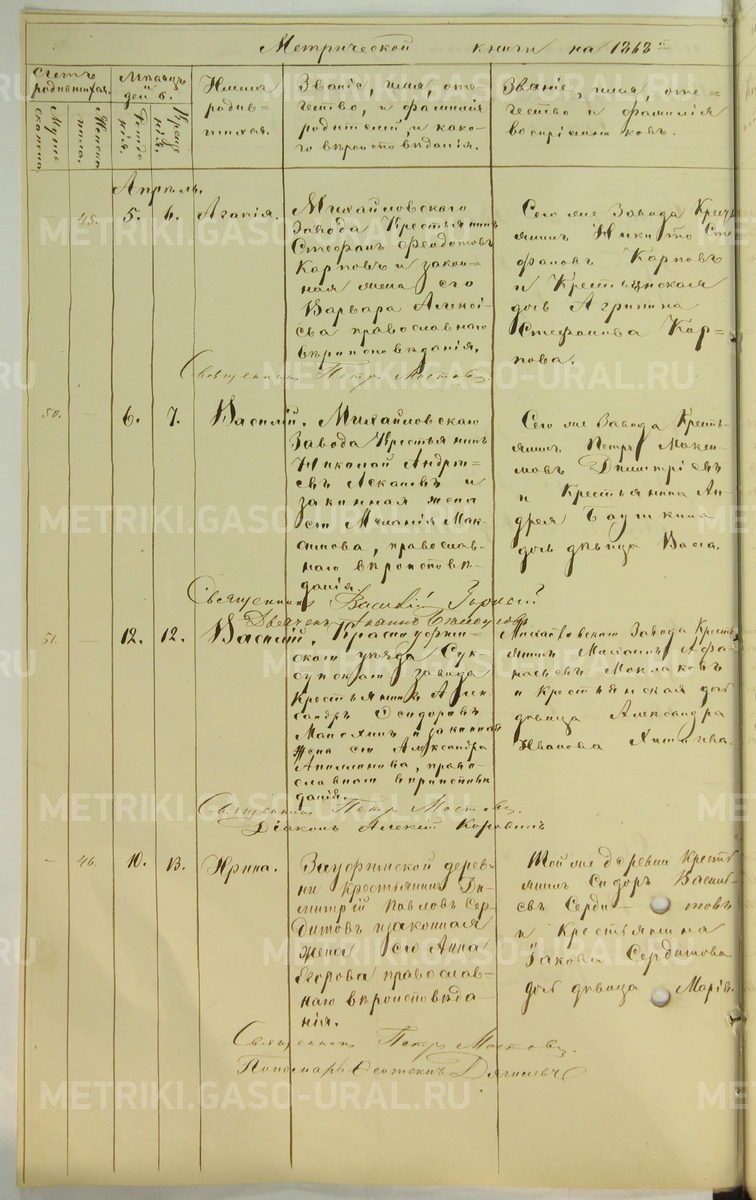 Метрической книги на 1868й
Счетъ родившихся.
Мужеска пола.
Женска пола.
Мѣсяцъ и день
Рожденія.
Крещенія.
Имена родившихся.
Званіе, имя, отечество, и фамилія родителей, и какого вѣроисповѣданія.
Званіе, имя, отечество и фамилія воспріемниковъ.
Апрѣль.
45. 5. 6. Агапія.
Михайловскаго
Завода Крестьянинъ
Стефанъ Феодотовъ
Карповъ и закон-
ная жена его
Варвара Алексѣ-
ева православнаго
вѣроисповѣданія.
Сего же Завода Кресть-
янинъ Никита Сте-
фановъ Карповъ
и Крестьянская
дочь Агрипина
Стефанова Кар-
пова.
Священникъ Петръ Мостовъ
50. — 6. 7. Василій.
Михайловскаго
Завода Крестьянинъ
Николай Андрѣ-
евъ и
законная жена
его Меланія Мак-
симова, православ-
наго вѣроисповѣ-
данія.
Сего же Завода Кресть-
янинъ Петръ Макси-
мовъ Димитріевъ
и Крестьянина Ан-
дрея
дочь дѣвица Васса.
Священникъ Василій
51. — 12. 12. Василій.
Красноуфим-
скаго уѣзда Сук-
сунскаго завода
Крестьянинъ Алек-
сандръ Сидоровъ
и законная
жена его Александра
православнаго вѣроисповѣ-
данія.
Михайловскаго Завода Кресть-
янинъ Михаилъ Афа-
насьевъ Моклаковъ
и Крестьянская доч
дѣвица Александра
Иванова
Священникъ Петръ Мостовъ.
Діаконъ Алексій Коровинъ
— 46. 10. 13. Ирина.
Зауфимской дерев-
ни крестьянинъ Ди-
митрій Павловъ Сер-
дитовъ и законная
жена его Анна
Егорова православ-
наго вѣроисповѣда-
нія.
Той же деревни Кресть-
янинъ Сидоръ Василь-
евъ Серди- товъ
и Крестьянина
Іакова Сердитова
доч дѣвица Марія.
Священникъ Петръ Мостовъ.
Пономарь Дягилевъ
METRIKI.GASO-URAL.RU